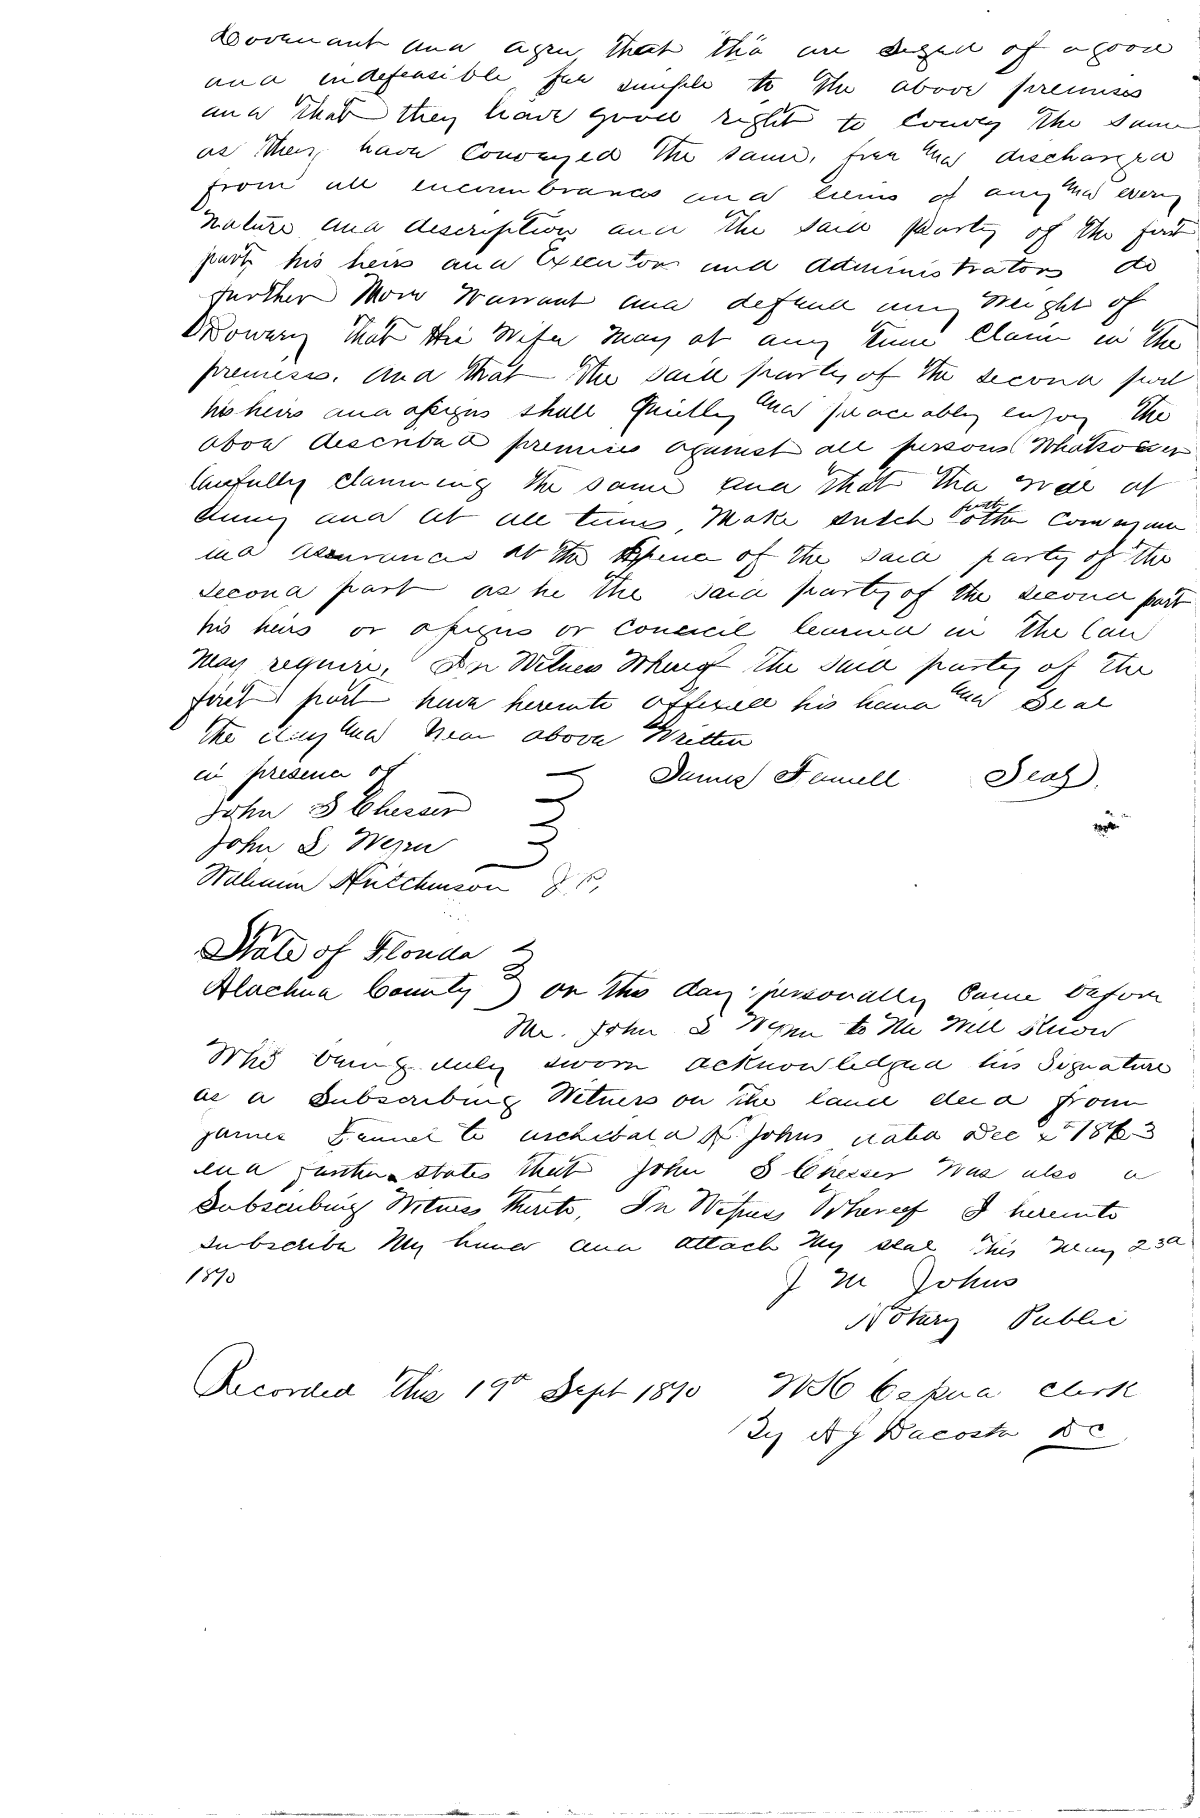 Covenant and agree that tha are seized of a good
and indefeasible fee simple to the above premises
and that they have good right to convey the same
as they have conveyed the same, free and discharged
from all encumbrances and liens of any and every
nature and description and the said party of the first
part his heirs and Executors and administrators do
further More Warrant and defend any Weight of
Dowary that His Wife May at any time Claim in the
premises. and that the said party of the second part
his heirs and assigns shall quietly and peaceably enjoy the
above described premises against all persons Whatsoever
lawfully claiming the same and that tha will at
and at all times Make sutch further other
and assurances at the of the said party of the
second part as he the said party of the second part
his heirs or assigns or council learned in the law
May require, In Witness Whereof the said party of the
first part have hereunto affixed his hand and Seal
the day and Year above Written
in presence of James Fennell Seal).
John S Chesser
John L Wynn
William Hutchinson J P,
State of Florida
Alachua County on this day personally came before
Me. John L Wynn to Me Well Know
Who being duly sworn acknowledged his Signature
as a Subscribing Witness on the land deed from
James Fennel to archibald Johns dated Dec 1863
and further states that John S Chesser was also a
Subscribing Witness thereto, In Witness Whereof I hereunto
subscribe My hand and attach My seal this May 23d
1890 J M Johns
Notary Public
Recorded this 19th Sept 1890 clerk
By A J Dacosta DC